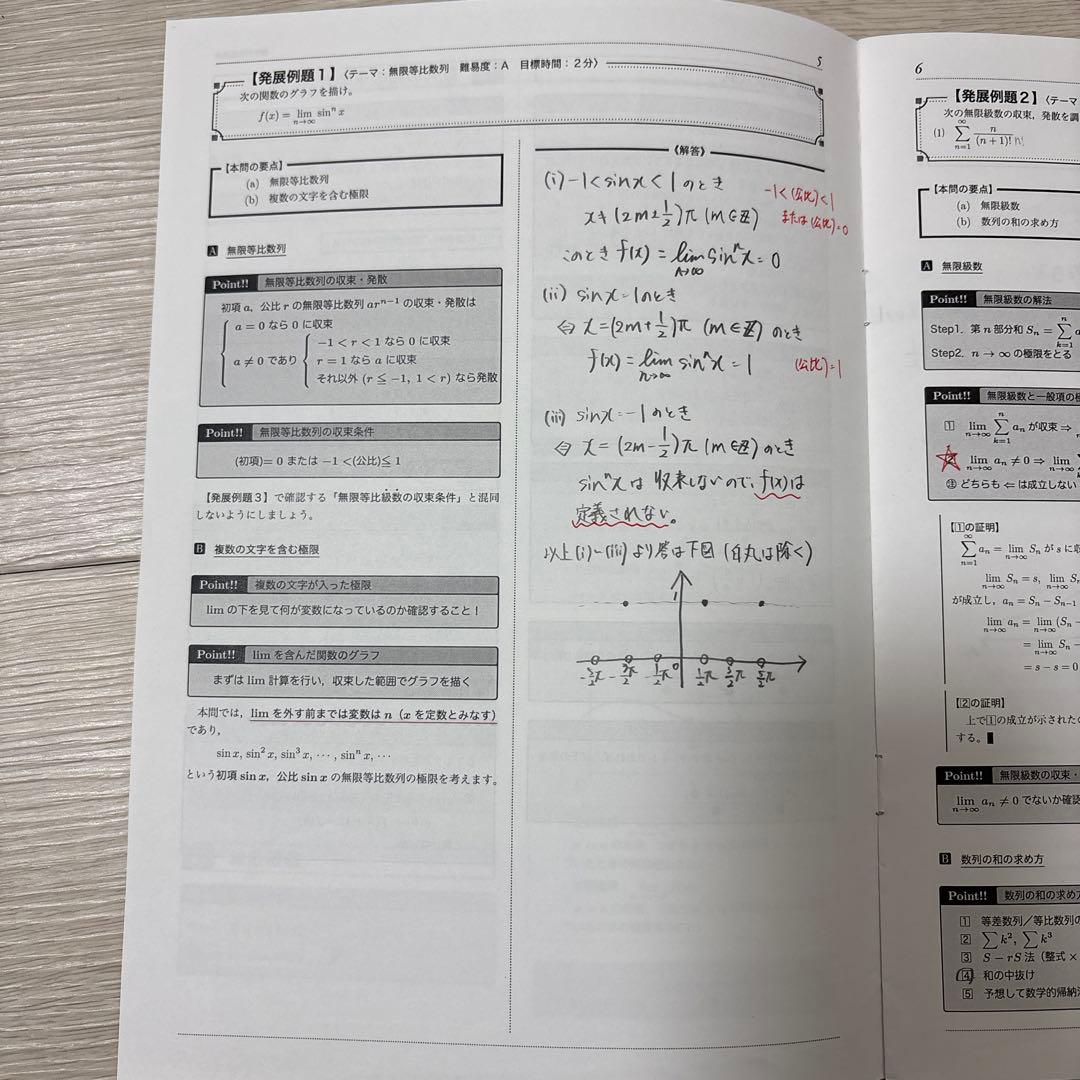 5
【発展例題1】〈テーマ:無限等比数列 難易度:A 目標時間:2分〉
次の関数のグラフを描け。
f(x) = lim_{n→∞} sin^n x
【本問の要点】
(a) 無限等比数列
(b) 複数の文字を含む極限
A 無限等比数列
Point!! 無限等比数列の収束・発散
初項 a,公比 r の無限等比数列 ar^{n−1} の収束・発散は
a = 0 なら 0 に収束
a ≠ 0 であり
−1 < r < 1 なら 0 に収束
r = 1 なら a に収束
それ以外 (r ≦ −1, 1 < r) なら発散
Point!! 無限等比数列の収束条件
(初項)= 0 または −1 <(公比)≦ 1
【発展例題3】で確認する「無限等比級数の収束条件」と混同
しないようにしましょう。
B 複数の文字を含む極限
Point!! 複数の文字が入った極限
lim の下を見て何が変数になっているのか確認すること!
Point!! lim を含んだ関数のグラフ
まずは lim 計算を行い,収束した範囲でグラフを描く
本問では,lim を外す前までは変数は n(x を定数とみなす)
であり,
sin x, sin² x, sin³ x, ⋯ , sin^n x, ⋯
という初項 sin x,公比 sin x の無限等比数列の極限を考えます。
《解答》
(i) −1 < sinx < 1 のとき
−1 < (公比) < 1
または (公比)=0
x ≠ (2m ± 1/2)π (m ∈ Z)
このとき f(x) = lim_{n→∞} sin^n x = 0
(ii) sinx = 1 のとき
⇔ x = (2m + 1/2)π (m ∈ Z) のとき
f(x) = lim_{n→∞} sin^n x = 1
(公比)=1
(iii) sinx = −1 のとき
⇔ x = (2m − 1/2)π (m ∈ Z) のとき
sin^n x は 収束しないので、f(x)は
定義されない。
以上(i)~(iii)より答は下図(白丸は除く)
1
0
−1/2π 1/2π 3/2π 5/2π
6
【発展例題2】〈テーマ
次の無限級数の収束,発散を調
(1) ∑_{n=1}^{∞} n/(n+1)! n!
【本問の要点】
(a) 無限級数
(b) 数列の和の求め方
A 無限級数
Point!! 無限級数の解法
Step1.第 n 部分和 S_n = ∑_{k=1}^{n} a
Step2.n → ∞ の極限をとる
Point!! 無限級数と一般項の極
1 lim_{n→∞} ∑_{k=1}^{n} a_n が収束 ⇒
2 lim_{n→∞} a_n ≠ 0 ⇒ lim_{n→∞}
注 どちらも ⇐ は成立しない
【1の証明】
∑_{n=1}^{∞} a_n = lim_{n→∞} S_n が s に収
lim_{n→∞} S_n = s, lim_{n→∞} S_n
が成立し,a_n = S_n − S_{n−1}
lim_{n→∞} a_n = lim_{n→∞} (S_n −
= lim_{n→∞} S_n −
= s − s = 0
【2の証明】
上で1の成立が示されたの
する。
Point!! 無限級数の収束・
lim_{n→∞} a_n ≠ 0 でないか確認
B 数列の和の求め方
Point!! 数列の和の求め方
1 等差数列/等比数列の
2 ∑k², ∑k³
3 S − rS 法(整式 ×
4 和の中抜け
5 予想して数学的帰納